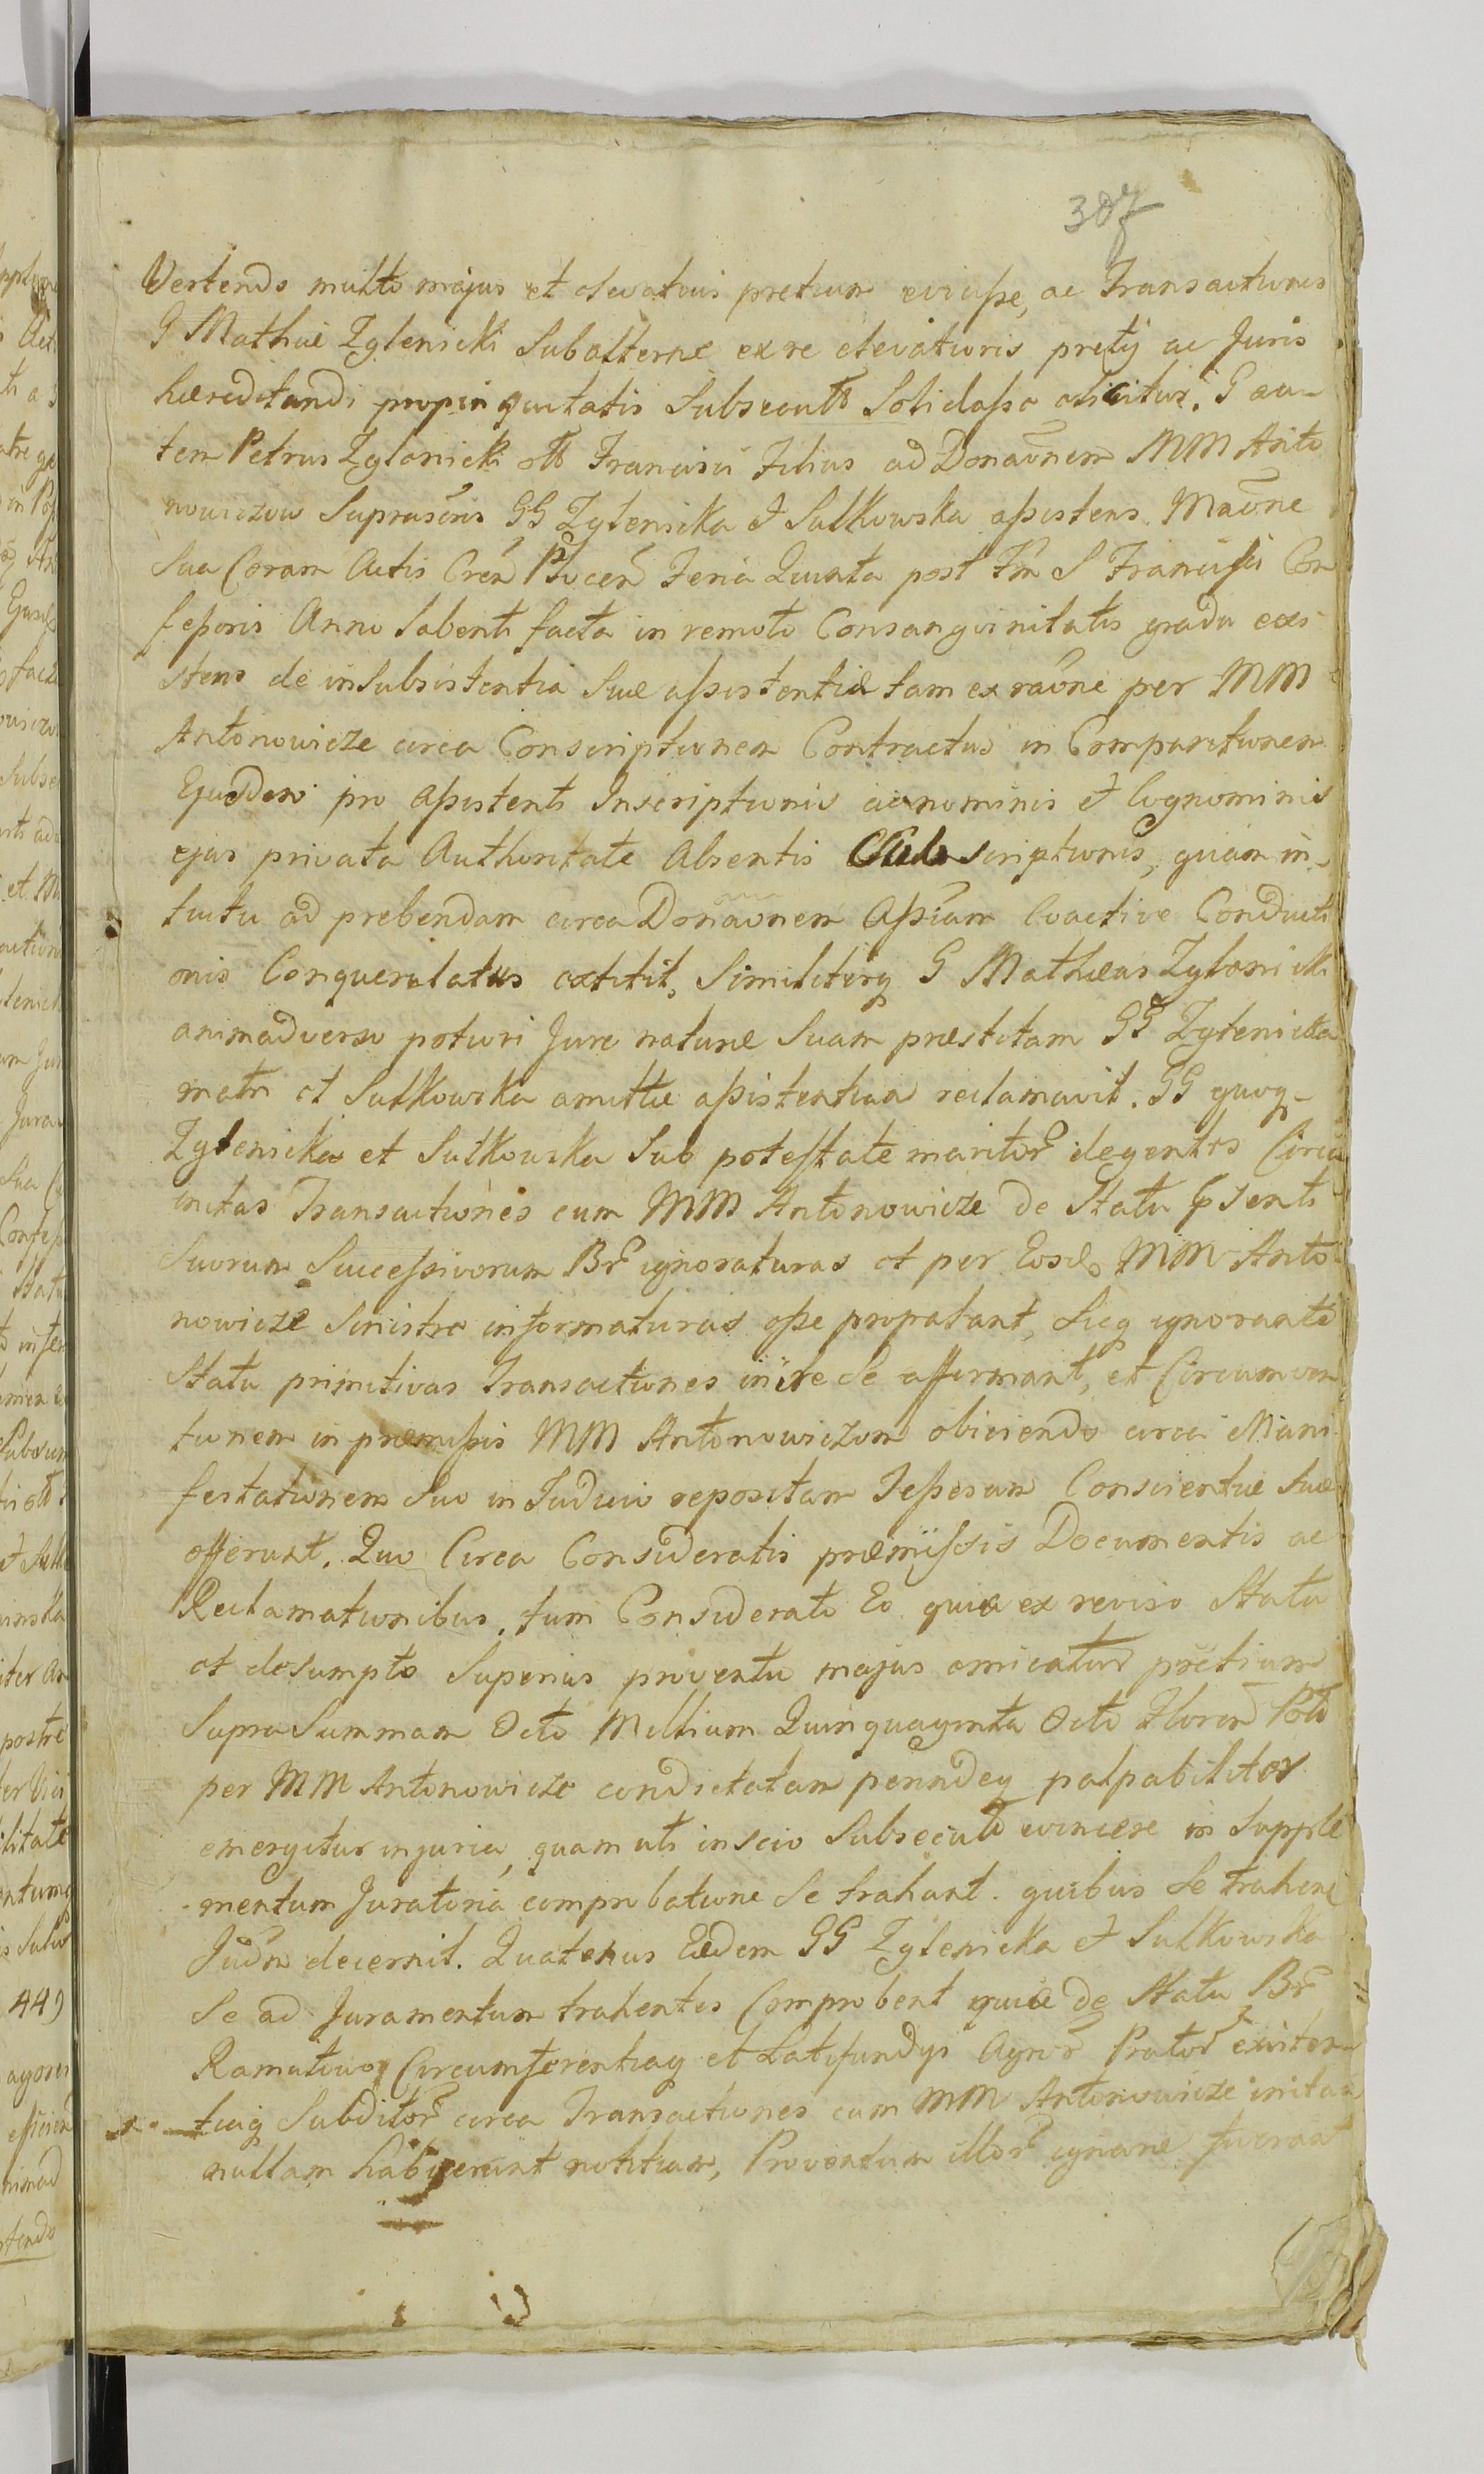 307
Vertendo multo majus et elevatius pretium evicisse, ac Transactiones
G Mathiæ Zglenicki Subalternæ ex re elevatioris pretij ac Juris
hæreditandi propinquitatis Subsecuto Solidasse asseritur. G au-
tem Petrus Zglenicki olt Francisci Filius ad Donaonem MM Anto
nowiczow Suprascris GG Zglenicka et Sulkowska assistens. Maone
sua Coram Actis Cren Plocen Feria Quarta post Fm S Francisci Con
fessoris Anno labenti facta in remoto Consanguinitatis gradu exi
stens de insubsistentia Suæ assistentiæ tam ex raone per MM
Antonowicze circa Conscriptionem Contractus in Comparitionem
Ejusdem pro assistenti Inscriptionis ac nominis et Cognominis
ejus privata Authoritate Absentis Subscriptionis, quam in-
tuitu ad prebendam circa Donaonem Assiam Coactive Conducti
onis Conquerulatus extitit, Similiterq G Mathæas Zglenicki
animadverso potiori Jure naturæ Suam præstitam GG Zglenicka
matri et Sulkowska amittæ assistentiam reclamavit. GG quoq-
Zglenicka et Sulkowska Sub potestate maritor degentes Circa
initas Transactiones cum MM Antonowicze de Statu psenti
Suorum Successivorum Br ignoraturas et per Eosd MM Anto
nowicze Sinistre informaturas esse properant, Sicq ignorante
Statu primitivas Transactiones iniire Se affirmant, et Circumven
tionem in præmissis MM Antonowiczom obiiciendo circa Mani
festationem Suo in Judicio repositam Jessesum Conscientiæ Suæ
offerunt. Quo Circa Consideratis præmissis Documentis ac
Reclamationibus, tum Considerato Eo quia ex reviso Statu
et desumpto Superius proventu majus emicatur prætium
Supra Summam Octo Millium Quinquaginta Octo Floren Pol
per MM Antonowicze condictatam penndeq palpabiliter
emergitur injuria, quam uti inscio Subsecuto evincere in Supple
mentum Juratoria comprobatione Se trahant. quibus Se trahere
Judm decernit. Quatenus Eædem GG Zglenicka et Sulkowska
Se ad Juramentum trahentes Comprobent quia de Statu Br
Ramutowo Circumferentiaq et Latifundys Agror Prator existen
tiaq Subditor circa Transactiones cum MM Antonowicze initas
nullam habuerunt notitiam, Proventum illor ignaræ fuerant